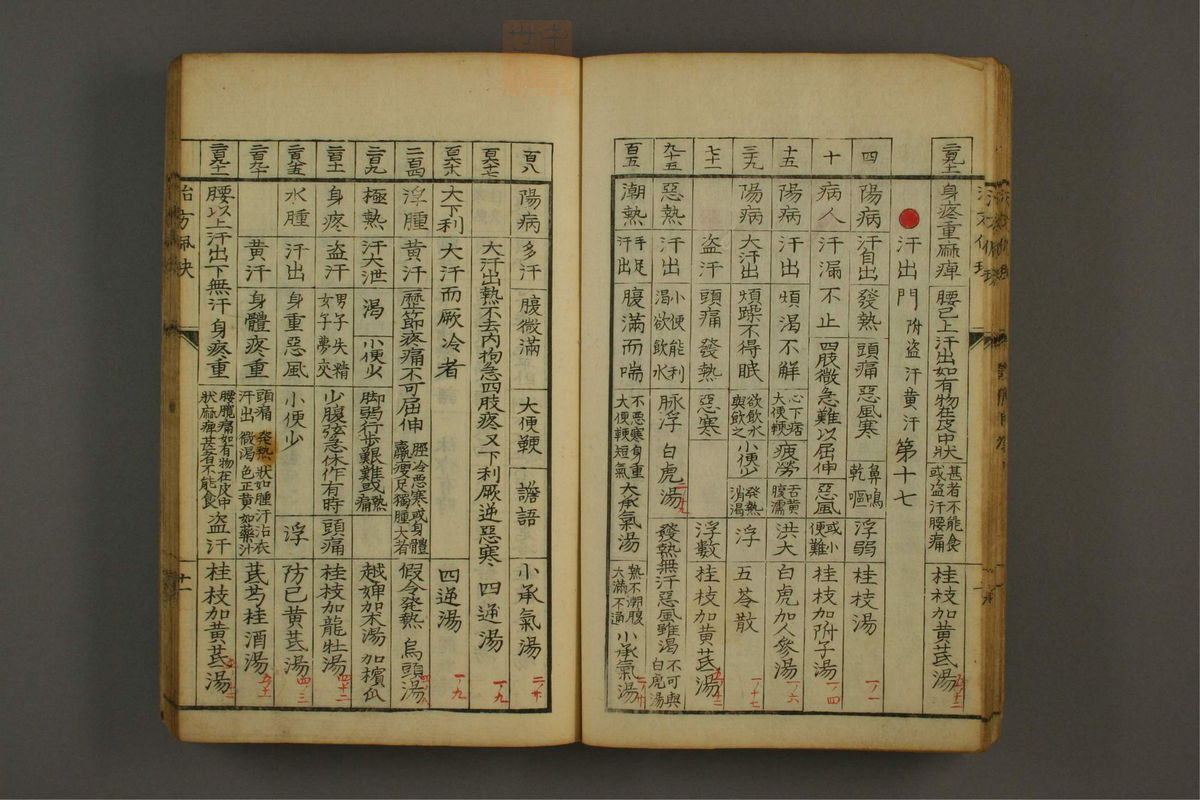 身疼重麻痺 腰已上汗出如有物在皮中狀 甚者不能食或盗汗腰痛 桂枝加黄芪湯
汗出門 附盗汗黄汗 第十七
四 陽病 汗自出 發熱 頭痛 惡風寒 鼻鳴乾嘔 浮弱 桂枝湯
十 病人 汗漏不止 四肢微急難以屈伸 惡風 或小便難 桂枝加附子湯
十五 陽病 汗出 煩渴不解 心下痞大便鞕 疲勞 舌黄腹濡 洪大 白虎加人參湯
三十九 陽病 大汗出 煩躁不得眠 欲飲水與飲之 小便少 發熱消渴 浮 五苓散
七十一 盗汗 頭痛 發熱 惡寒 浮數 桂枝加黄芪湯
九十五 惡熱 汗出 小便能利渴欲飲水 脉浮 白虎湯 發熱無汗惡風雖渴 不可與白虎湯
百五 潮熱 手足汗出 腹滿而喘 不惡寒身重大便鞕短氣 大承氣湯 熱不潮腹大滿不通 小承氣湯
百八 陽病 多汗 腹微滿 大便鞕 譫語 小承氣湯
百六十七 大汗出熱不去內拘急四肢疼又下利厥逆惡寒 四逆湯
百六十八 大下利 大汗而厥冷者 四逆湯
二百四 浮腫 黄汗 歷節疼痛不可屈伸 脛冷惡寒或身體羸瘦足獨腫大若 假令發熱 烏頭湯
二百九 極熱 汗大泄 渴 小便少 脚弱行步艱難或熱痛 越婢加朮湯 加檳瓜
二百十一 身疼 盗汗 男子失精女子夢交 少腹弦急休作有時 頭痛 桂枝加龍牡湯
水腫 汗出 身重惡風 小便少 浮 防已黄芪湯
二百九十 黄汗 身體疼重 頭痛發熱狀如腫汗沾衣汗出微渴色正黄如藥汁 芪芍桂酒湯
二百九十一 腰以上汗出下無汗 身疼重 腰髖痛如有物在皮中狀麻痺甚者不能食 盗汗 桂枝加黄芪湯
治方